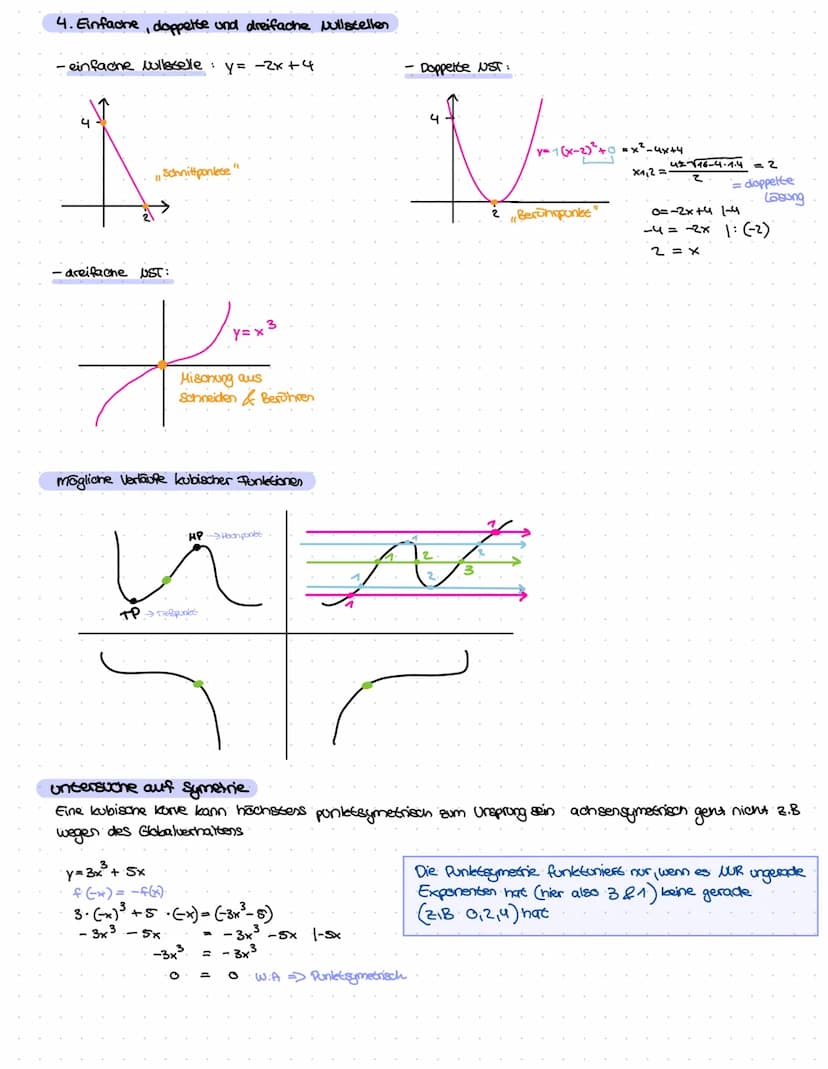 4. Einfache, doppelte und dreifache Nullstellen
- einfache Nullstelle : y = -2x + 4
- Doppelte NST:
4
2
"Schnittpunkte"
4
2
"Berührpunkt"
y= 1(x-2)² + 0 = x²-4x+4
x1,2 = 4±√16-4·1·4 / 2 = 2
= doppelte Lösung
0=-2x+4 |-4
-4 = -2x |:(-2)
2 = x
- dreifache NST:
y= x³
Mischung aus
Schneiden & Berühren
mögliche Verläufe kubischer Funktionen
HP → Hochpunkt
TP → Tiefpunkt
1
1
2
1
2
3
1
2
1
untersuche auf Symetrie
Eine kubische Kurve kann höchstens punktsymetrisch zum Ursprung sein achsensymetrisch geht nicht z.B
wegen des Globalverhaltens
y = 3x³ + 5x
f(-x) = -f(x)
3·(-x)³ + 5 ·(-x) = (-3x³-5)
-3x³ - 5x = -3x³ -5x |-5x
-3x³ = -3x³
0 = 0 W.A => Punktsymetrisch
Die Punktsymetrie funktuniert nur, wenn es NUR ungerade
Exponenten hat (hier also 3 & 1) keine gerade
(z.B 0,2,4) hat